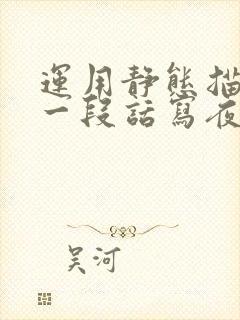 運用靜態描
一段話寫夜
吴河